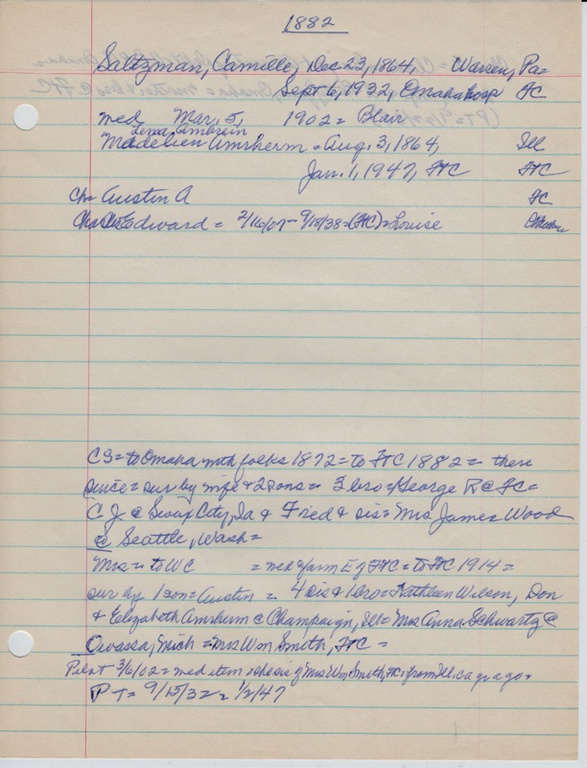 1882
Saltzman, Camille, Dec 23, 1864, Warren, Pa=
Sept 6, 1932, Omaha hosp FC
med Mar. 5, 1902 = Blair
Lena
Madelien Amrherm = Aug. 3, 1864, Ill
Jan. 1, 1947, FC FC
Ch= Austin A FC
Charles Edward = 2/16/07 - 9/18/38 = (FC) = Louise
CS = to Omaha with folks 1872 = to FC 1882 = there
since = sur by wife & 2 sons = 3 bro = George R @ FC =
C J @ Sioux City, Ia & Fred & sis = Mrs James Wood
@ Seattle, Wash =
Mrs = to WC = med & farm E of FC = to FC 1914 =
sur by 1 son = Austin = 4 sis & 1 bro = Kathleen Wilson, Don
& Elizabeth Amrherm @ Champaign, Ill = Mrs Anna Schwartz @
Owassa, Mich = Mrs Wm Smith, FC =
Pilot 3/6/02 = med item = she sis of Mrs Wm Smith, FC = from Ill. ca yr ago =
PT = 9/15/32 = 1/2/47